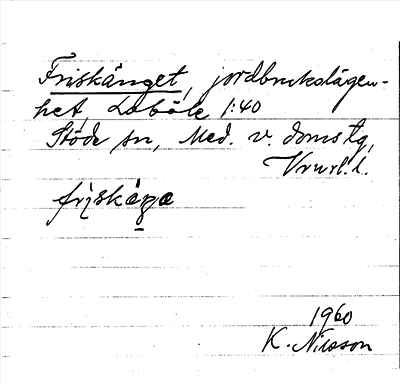 Friskänget, jordbrukslägen-
het, Loböle 1:40
Stöde sn, Med. v. doms tg,
Vnrl. l.
friskä̀ŋa
1960
K. Nilsson